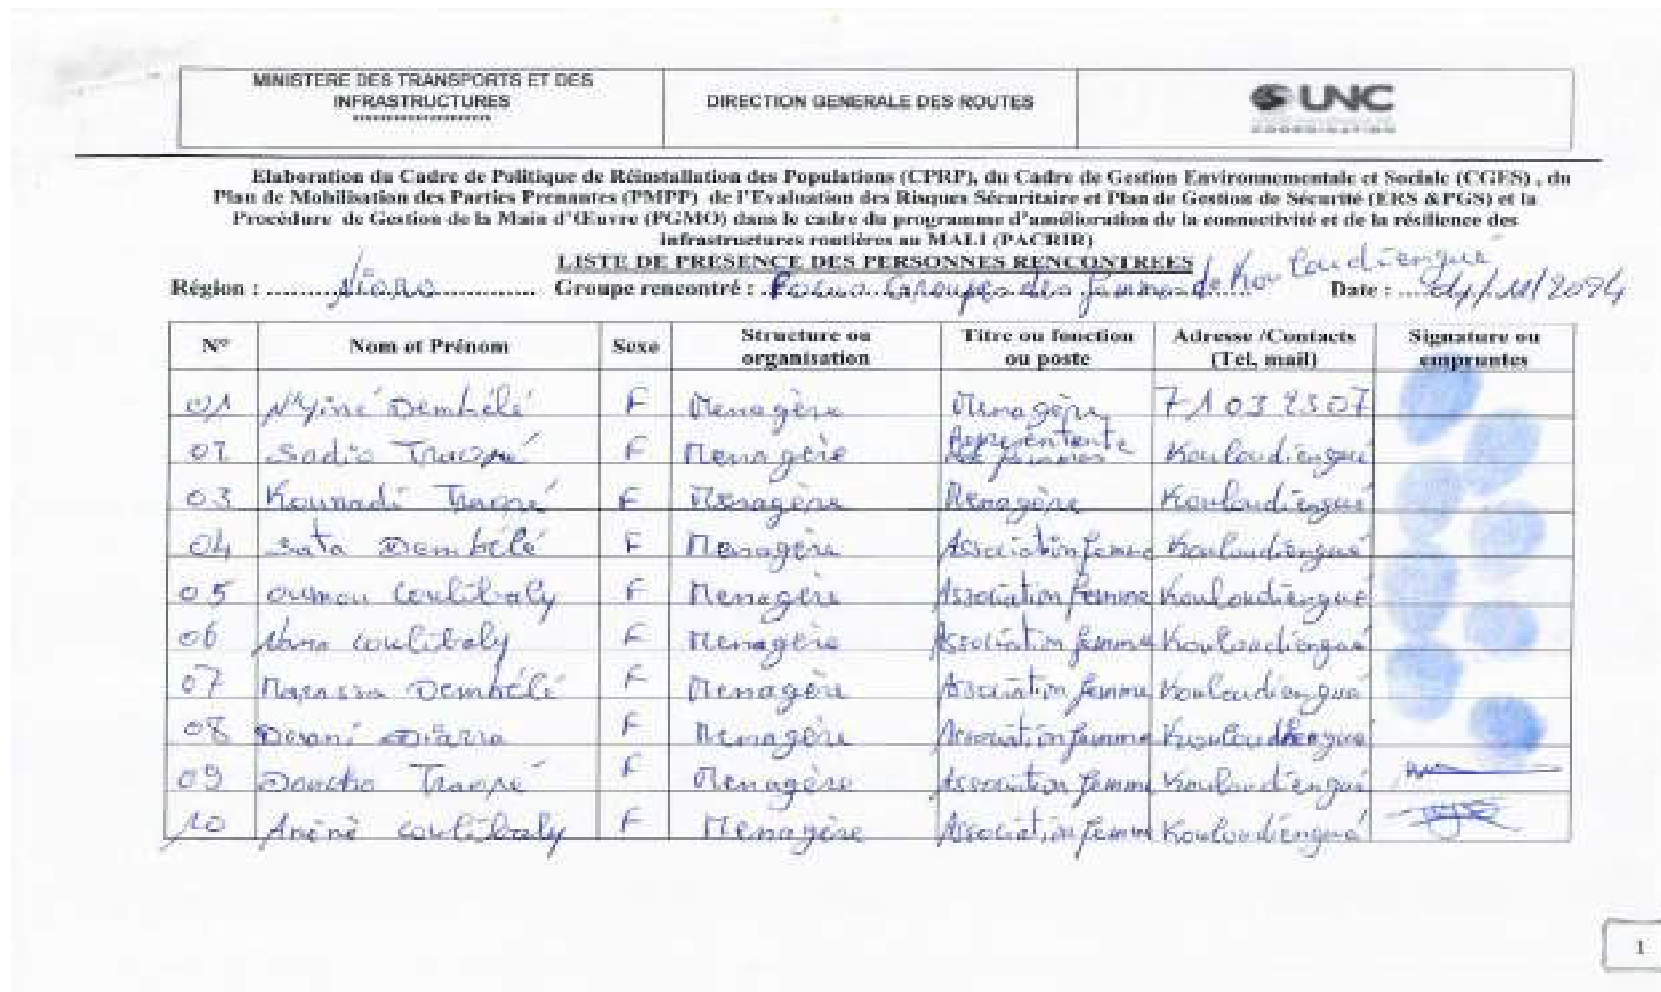 MINISTERE DES TRANSPORTS ET DES
INFRASTRUCTURES
********************
DIRECTION GENERALE DES ROUTES
UNC
COORDINATION
Elaboration du Cadre de Politique de Réinstallation des Populations (CPRP), du Cadre de Gestion Environnementale et Sociale (CGES) , du
Plan de Mobilisation des Parties Prenantes (PMPP) de l'Evaluation des Risques Sécuritaire et Plan de Gestion de Sécurité (ERS &PGS) et la
Procédure de Gestion de la Main d'Œuvre (PGMO) dans le cadre du programme d'amélioration de la connectivité et de la résilience des
infrastructures routières au MALI (PACRIR)
LISTE DE PRESENCE DES PERSONNES RENCONTREES
Région : Groupe rencontré : Focus Groupes des femmes de Kouloudiengué Date : 04/11/2024
N° Nom et Prénom Sexe Structure ou organisation Titre ou fonction ou poste Adresse /Contacts (Tel, mail) Signature ou empruntes
01 Dembélé F Menagère Menagère
02 Sadio Traoré F Menagère Représentante des femmes Kouloudiengué
03 Traoré F Menagère Menagère Kouloudiengué
04 Sata Dembélé F Menagère Association femme Kouloudiengué
05 Oumou Coulibaly F Menagère Association femme Kouloudiengué
06 Coulibaly F Menagère Association femme Kouloudiengué
07 Dembélé F Menagère Association femme Kouloudiengué
08 Diarra F Menagère Association femme Kouloudiengué
09 Traoré F Menagère Association femme Kouloudiengué
10 Coulibaly F Menagère Association femme Kouloudiengué
1